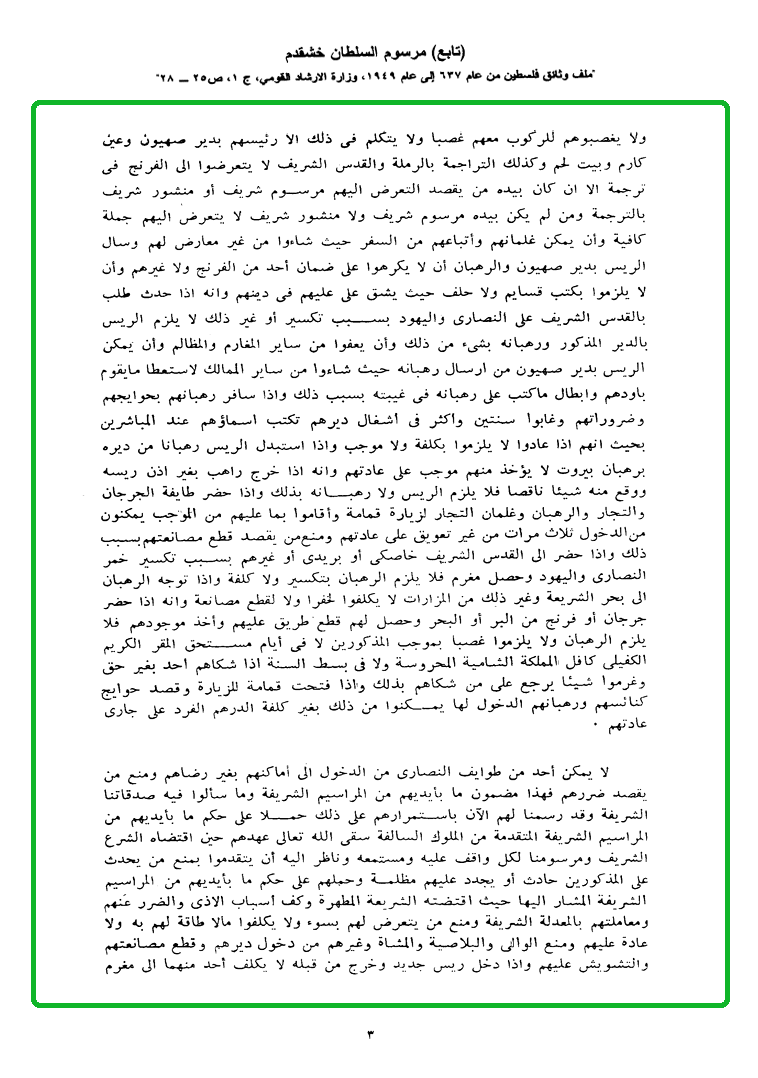 (تابع) مرسوم السلطان خشقدم
"ملف وثائق فلسطين من عام ٦٣٧ إلى عام ١٩٤٩، وزارة الارشاد القومي، ج ١، ص٢٥ – ٢٨"
ولا يغصبوهم للركوب معهم غصبا ولا يتكلم فى ذلك الا رئيسهم بدير صهيون وعين
كارم وبيت لحم وكذلك التراجمة بالرملة والقدس الشريف لا يتعرضوا الى الفرنج فى
ترجمة الا ان كان بيده من يقصد التعرض اليهم مرسـوم شريف أو منشور شريف
بالترجمة ومن لم يكن بيده مرسوم شريف ولا منشور شريف لا يتعرض اليهم جملة
كافية وأن يمكن غلمانهم وأتباعهم من السفر حيث شاءوا من غير معارض لهم وسال
الريس بدير صهيون والرهبان أن لا يكرهوا على ضمان أحد من الفرنج ولا غيرهم وأن
لا يلزموا بكتب قسايم ولا حلف حيث يشق على عليهم فى دينهم وانه اذا حدث طلب
بالقدس الشريف على النصارى واليهود بســبب تكسير أو غير ذلك لا يلزم الريس
بالدير المذكور ورهبانه بشىء من ذلك وأن يعفوا من ساير المغارم والمظالم وأن يمكن
الريس بدير صهيون من ارسال رهبانه حيث شاءوا من ساير الممالك لاستعطا مايقوم
باودهم وابطال ماكتب على رهبانه فى غيبته بسبب ذلك واذا سافر رهبانهم بحوايجهم
وضروراتهم وغابوا سنتين واكثر فى أشغال ديرهم تكتب اسماؤهم عند المباشرين
بحيث انهم اذا عادوا لا يلزموا بكلفة ولا موجب واذا استبدل الريس رهبانا من ديره
برهبان بيروت لا يؤخذ منهم موجب على عادتهم وانه اذا خرج راهب بغير اذن ريسه
ووقع منه شيئا ناقصا فلا يلزم الريس ولا رهبــانه بذلك واذا حضر طايفة الجرجان
والتجار والرهبان وغلمان التجار لزيارة قمامة وأقاموا بما عليهم من الموجب يمكنون
من الدخول ثلاث مرات من غير تعويق على عادتهم ومنع من يقصد قطع مصانعتهم بسبب
ذلك واذا حضر الى القدس الشريف خاصكى أو بريدى أو غيرهم بســبب تكسير خمر
النصارى واليهود وحصل مغرم فلا يلزم الرهبان بتكسير ولا كلفة واذا توجه الرهبان
الى بحر الشريعة وغير ذلك من المزارات لا يكلفوا لخفرا ولا لقطع مصانعة وانه اذا حضر
جرجان أو فرنج من البر أو البحر وحصل لهم قطع طريق عليهم وأخذ موجودهم فلا
يلزم الرهبان ولا يلزموا غصبا بموجب المذكورين لا فى أيام مســتحق المقر الكريم
الكفيلى كافل المملكة الشامية المحروسة ولا فى بسط السنة اذا شكاهم احد بغير حق
وغرموا شيئا يرجع على من شكاهم بذلك واذا فتحت قمامة للزيارة وقصد حوايج
كنائسهم ورهبانهم الدخول لها يمــكنوا من ذلك بغير كلفة الدرهم الفرد على جارى
عادتهم .
لا يمكن أحد من طوايف النصارى من الدخول الى أماكنهم بغير رضاهم ومنع من
يقصد ضررهم فهذا مضمون ما بأيديهم من المراسيم الشريفة وما سألوا فيه صدقاتنا
الشريفة وقد رسمنا لهم الآن باستمرارهم على ذلك حمــلا على حكم ما بأيديهم من
المراسيم الشريفة المتقدمة من الملوك السالفة سقى الله تعالى عهدهم حين اقتضاه الشرع
الشريف ومرسومنا لكل واقف عليه ومستمعه وناظر اليه أن يتقدموا بمنع من يحدث
على المذكورين حادث أو يجدد عليهم مظلمة وحملهم على حكم ما بأيديهم من المراسيم
الشريفة المشار اليها حيث اقتضته الشريعة المطهرة وكف أسباب الاذى والضرر عنهم
ومعاملتهم بالمعدلة الشريفة ومنع من يتعرض لهم بسوء ولا يكلفوا مالا طاقة لهم به ولا
عادة عليهم ومنع الوالى والبلاصية والمشاة وغيرهم من دخول ديرهم وقطع مصانعتهم
والتشويش عليهم واذا دخل ريس جديد وخرج من قبله لا يكلف أحد منهما الى مغرم
٣